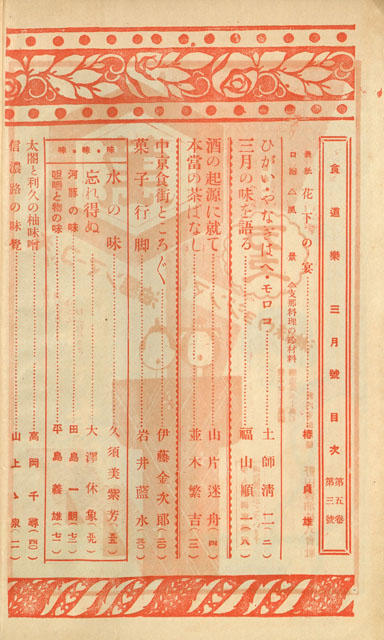 食道樂 三月號 目次 第五卷 第三號
表紙 花下の宴 椿貞雄
口繪 風景 支那料理の材料
ひがい・やなぎばへ・モロコ 土師清二(二)
三月の味を語る 福山順一(八)
酒の起源に就て 山片迷舟(四)
本當の茶ばなし 並木繁吉
中京食街ところ〴〵 伊藤金次郎
菓子行脚 岩井藍水
味・味・味
水の味 久須美紫芳
忘れ得ぬ 大澤休象
河豚の味 田島一朗
咀嚼と物の味 平島義雄
太閤と利久の柚味噌 高岡千尋(四〇)
信濃路の味覺 山上ゝ泉